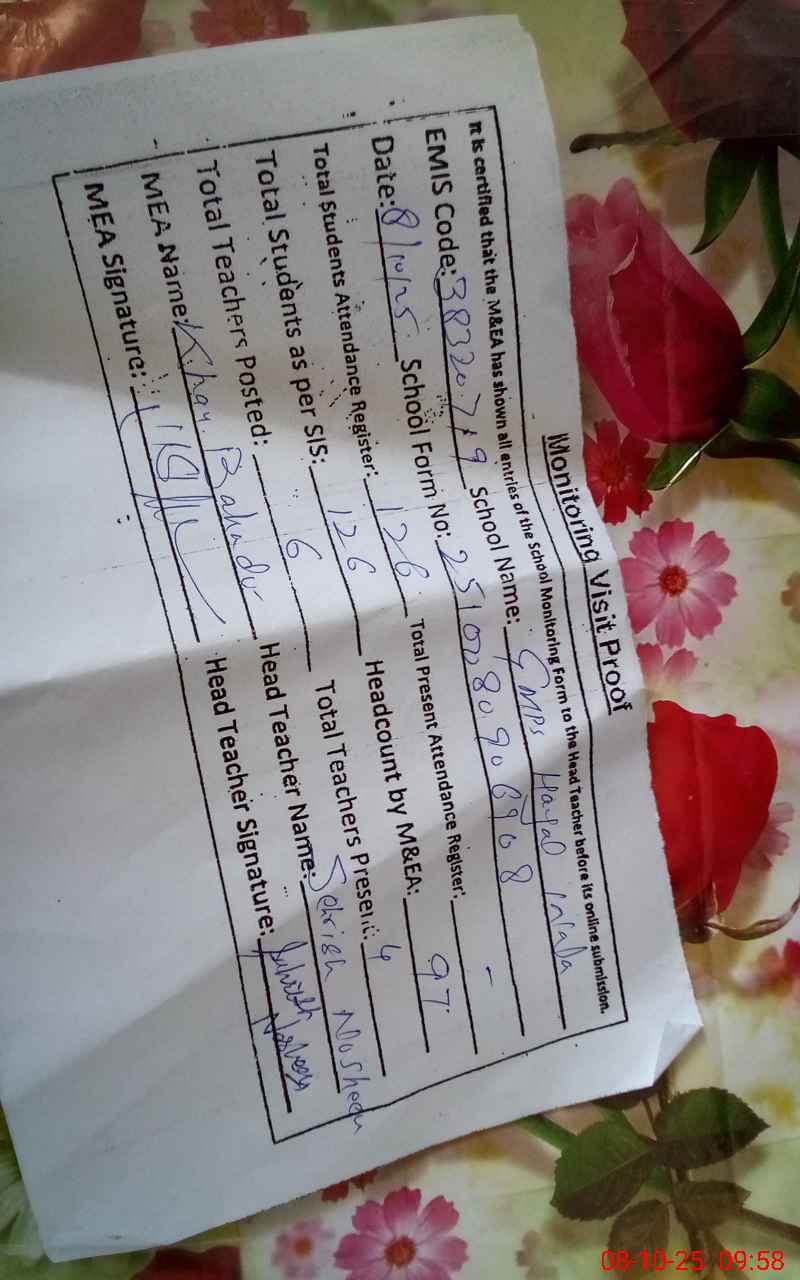 Monitoring Visit Proof
It is certified that the M&EA has shown all entries of the School Monitoring Form to the Head Teacher before its online submission.
EMIS Code: 38320719 School Name: GMPS Hayal
Date: 8/10/25 School Form No:
Total Students Attendance Register: 126 Total Present Attendance Register: -
Total Students as per SIS: 126 Headcount by M&EA: 97
Total Teachers Posted: 6 Total Teachers Present: 4
MEA Name: Khan Bahadur Head Teacher Name: Sehrish Nosheen
MEA Signature: Head Teacher Signature:
08-10-25 09:58